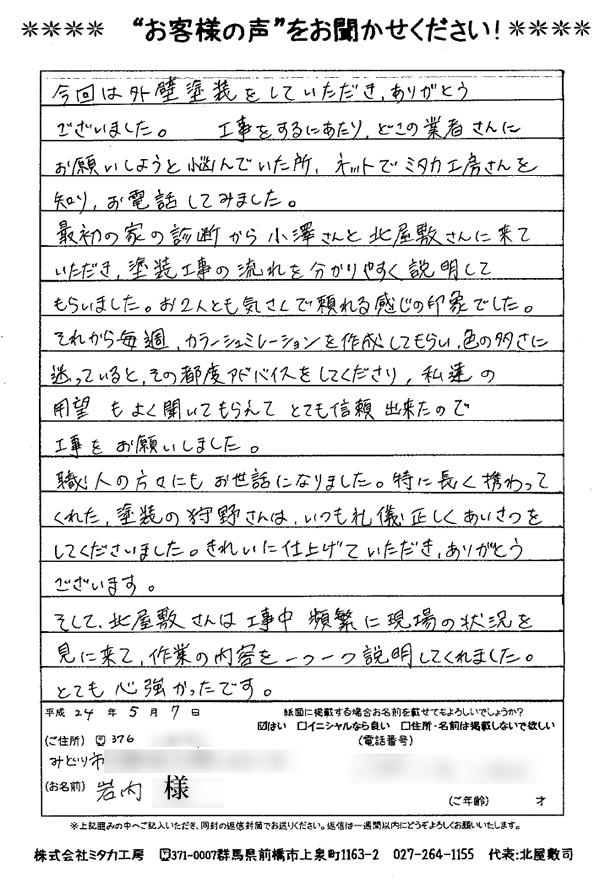 ✲✲✲✲ “お客様の声”をお聞かせください! ✲✲✲✲
今回は外壁塗装をしていただき、ありがとう
ございました。 工事をするにあたり、どこの業者さんに
お願いしようと悩んでいた所、ネットでミタカ工房さんを
知り、お電話してみました。
最初の家の診断から小澤さんと北屋敷さんに来て
いただき、塗装工事の流れを分かりやすく説明して
もらいました。お2人とも気さくで頼れる感じの印象でした。
それから毎週、カラーシュミレーションを作成してもらい、色の多さに
迷っていると、その都度アドバイスをしてくださり、私達の
用望 もよく聞いてもらえて とても信頼出来たので
工事をお願いしました。
職人の方々にもお世話になりました。特に長く携わって
くれた、塗装の狩野さんは、いつも礼儀正しくあいさつを
してくださいました。きれいに仕上げていただき、ありがとう
ございます。
そして、北屋敷さんは工事中 頻繁に現場の状況を
見に来て、作業の内容を一つ一つ説明してくれました。
とても心強かったです。
平成 24 年 5 月 7 日
紙面に掲載する場合お名前を載せてもよろしいでしょうか?
☑はい □イニシャルなら良い □住所・名前は掲載しないで欲しい
(ご住所) 〒376
(電話番号)
みどり市
(お名前) 岩内 様
(ご年齢) 才
※上記囲みの中へご記入いただき、同封の返信封筒でお送りください。返信は一週間以内にどうぞよろしくお願いいたします。
株式会社ミタカ工房 〒371-0007群馬県前橋市上泉町1163-2 027-264-1155 代表:北屋敷司